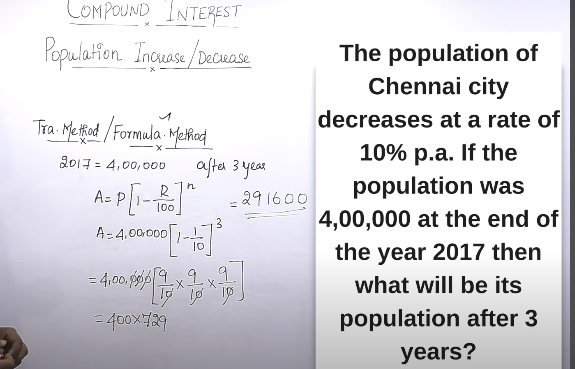 COMPOUND INTEREST
Population Increase/Decrease
Tra. Method / Formula Method
2017 = 4,00,000 after 3 year
A = P[1 - R/100]^n = 291600
A = 4,00,000[1 - 1/10]^3
= 4,00,000[9/10 × 9/10 × 9/10]
= 400×729
The population of
Chennai city
decreases at a rate of
10% p.a. If the
population was
4,00,000 at the end of
the year 2017 then
what will be its
population after 3
years?